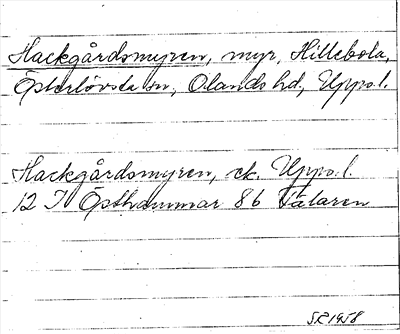 Hackgårdsmyren, myr, Hillebola,
Österlövsta sn, Olands hd, Upps.l.
Hackgårdsmyren, ek. Upps.l.
12 I Östhammar 8b Tälaren
SR 1958